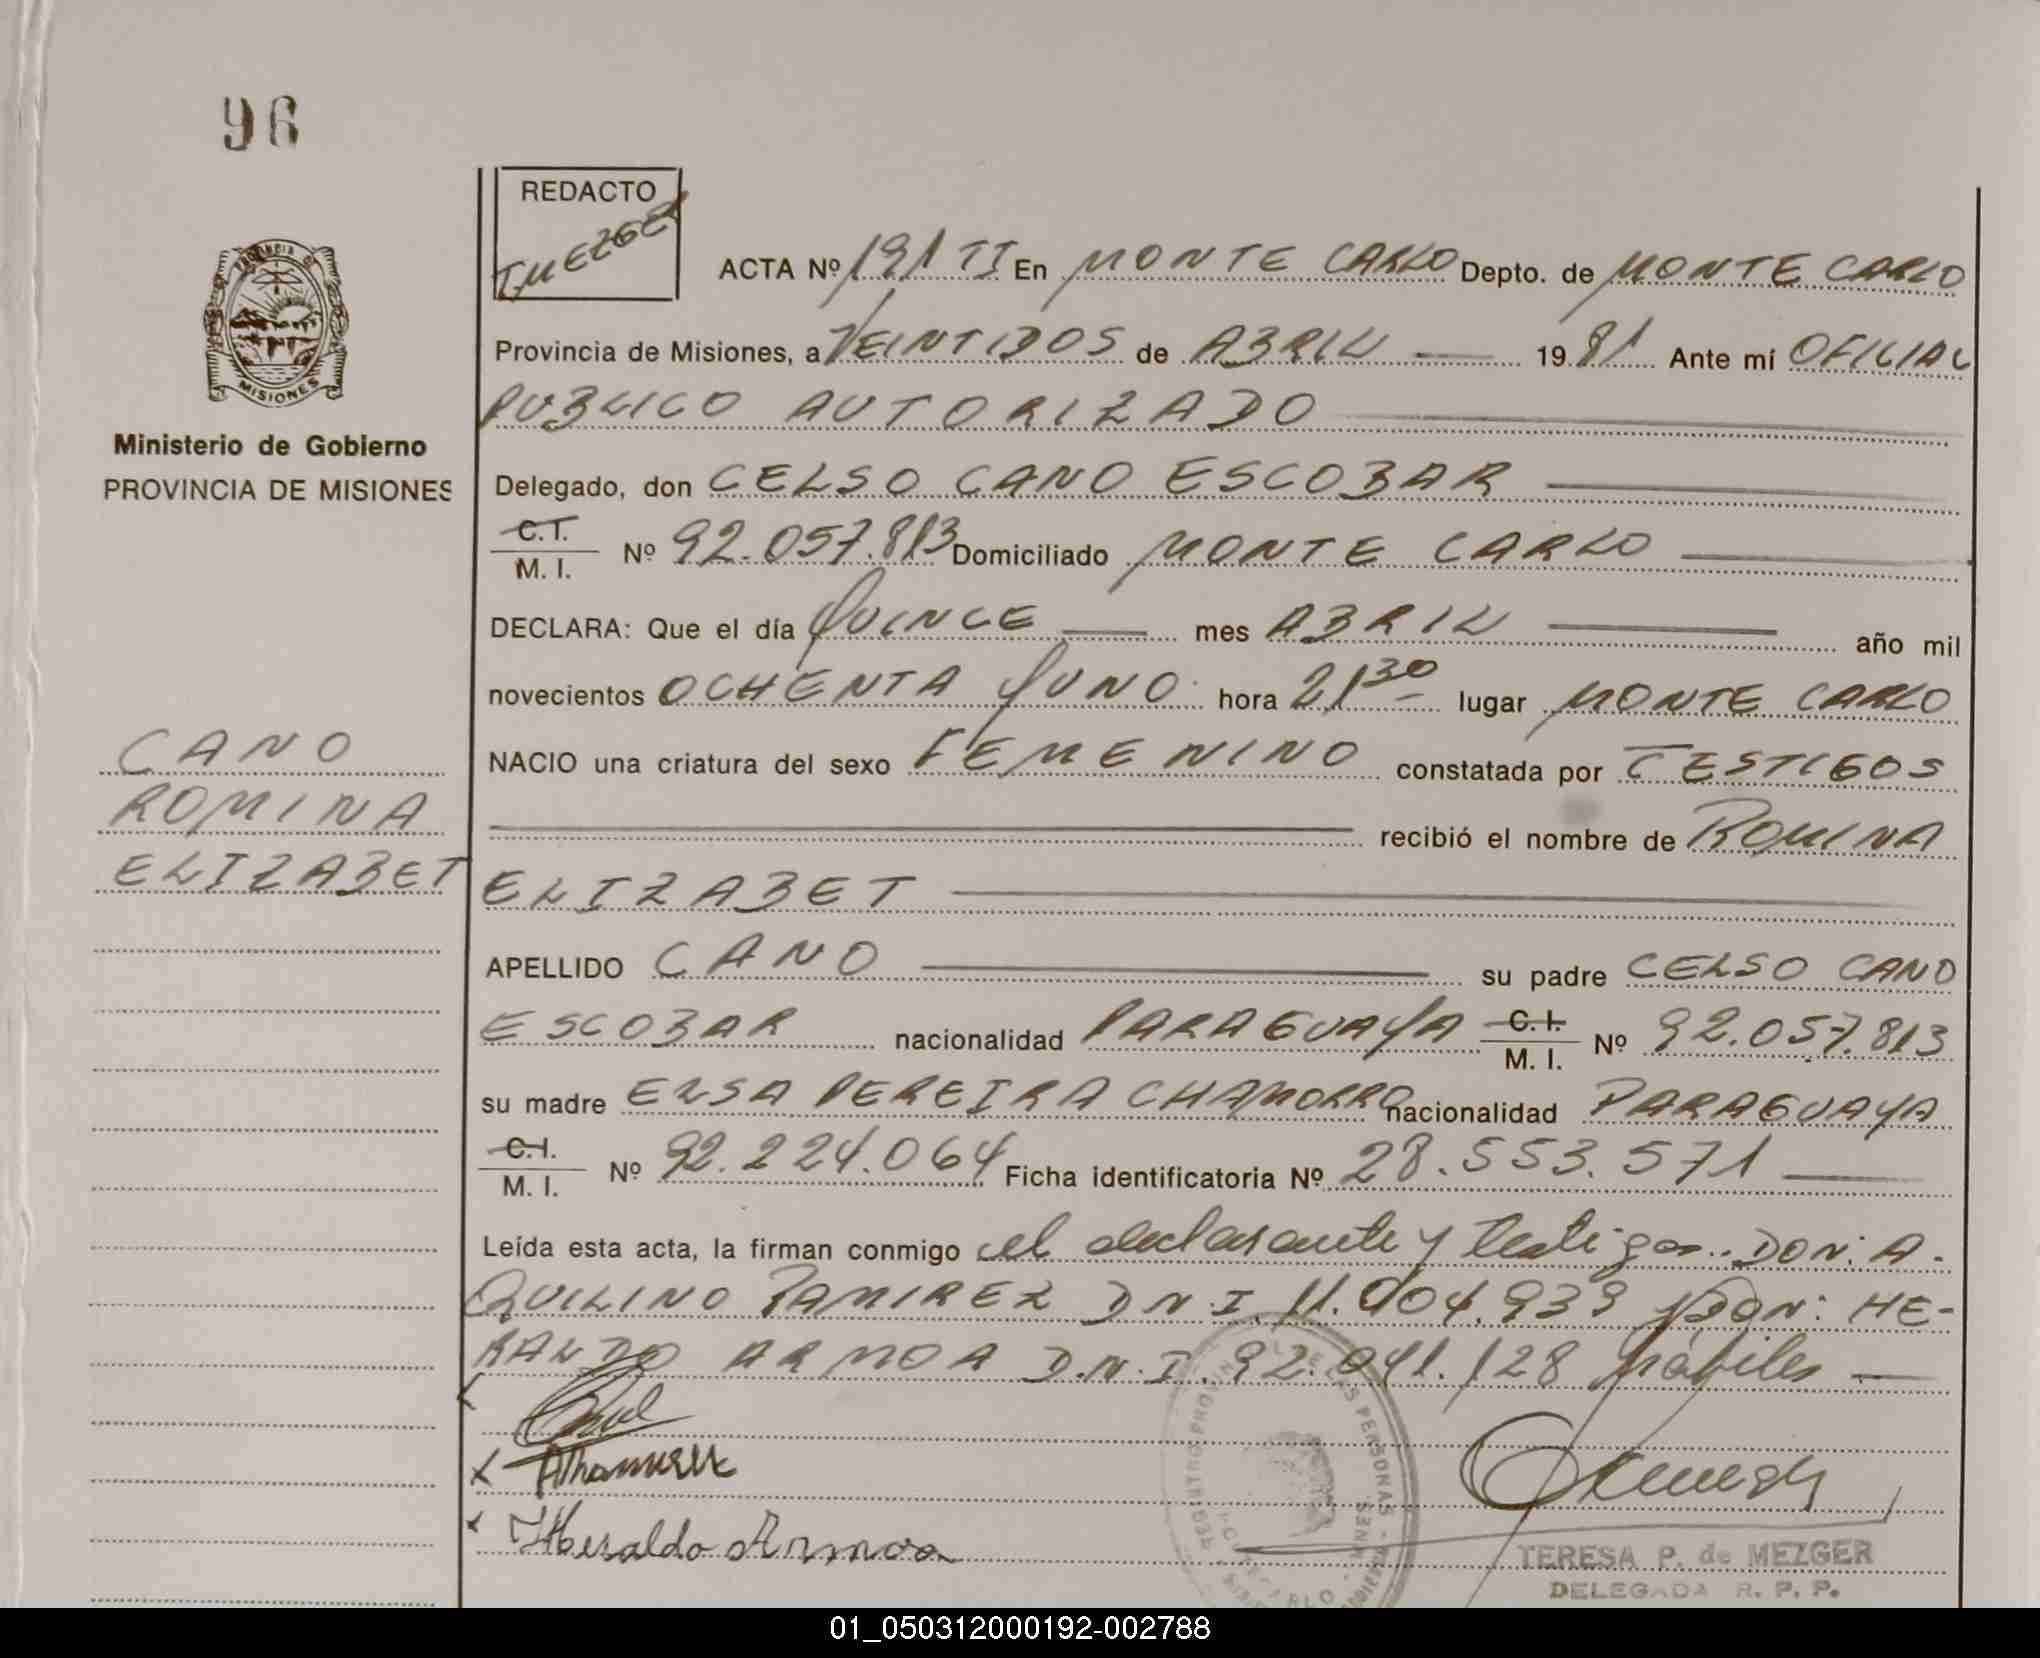 96
REDACTO
T.MEZGER
ACTA Nº 191 TI En MONTE CARLO Depto. de MONTE CARLO
Provincia de Misiones, a VEINTIDOS de ABRIL 19 81 Ante mí OFICIAL
PUBLICO AUTORIZADO
Ministerio de Gobierno
PROVINCIA DE MISIONES
MISIONES
Delegado, don CELSO CANO ESCOBAR
C.I.
M. I. Nº 92.057.813 Domiciliado MONTE CARLO
DECLARA: Que el día QUINCE mes ABRIL año mil
novecientos OCHENTA YUNO hora 21,30 lugar MONTE CARLO
CANO
ROMINA
ELIZABET
NACIO una criatura del sexo FEMENINO constatada por TESTIGOS
recibió el nombre de ROMINA
ELIZABET
APELLIDO CANO su padre CELSO CANO
ESCOBAR nacionalidad PARAGUAYA C.I. M. I. Nº 92.057.813
su madre ELSA PEREIRA CHAMORRO nacionalidad PARAGUAYA
C.I.
M. I. Nº 92.224.064 Ficha identificatoria Nº 28.553.571
Leída esta acta, la firman conmigo el declarante y testigos.. DON: A-
QUILINO RAMIREZ D.N.I. 11.004.939 y DON: HE-
RALDO ARMOA D.N.I. 92.041.128 hábiles
Heraldo Armoa
TERESA P. de MEZGER
DELEGADA R. P. P.
01_050312000192-002788